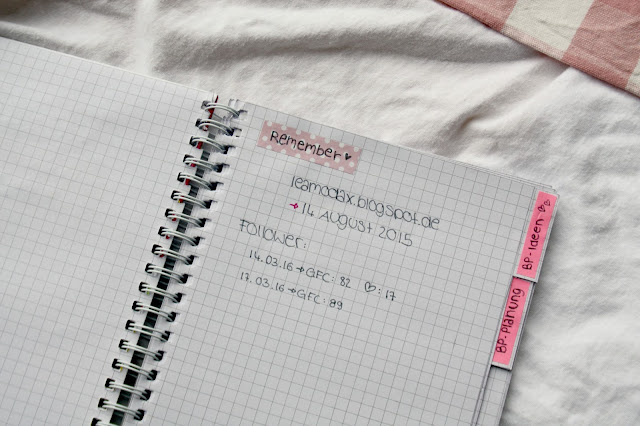 Remember ♥
leamodax.blogspot.de
→ 14. August 2015
Follower:
14.03.16 → GFC: 82 ♡: 17
17.03.16 → GFC: 89
BP-Ideen ♡♡
BP-Planung